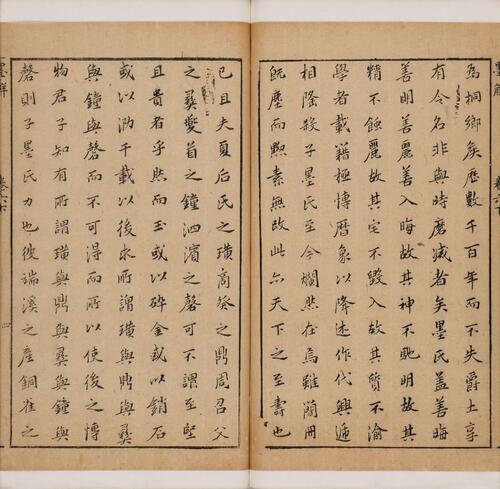 為桐鄉矦歷數千百年而不失爵土享
有令名非與時磨滅者矣墨氏蓋善晦
善明善麗善入晦故其神不馳明故其
精不蝕麗故其定不毀入故其質不渝
學者載籍極博曆象以降述作代興遞
相隆殺子墨氏至今爛然在焉雖蘭冊
既塵而黝素無改此亦天下之至壽也
已且夫夏后氏之璜商癸之鼎周召父
之彞夔首之鐘泗濱之磬可不謂至堅
且貴者乎然而玉或以碎金或以銷石
或以泐千載以後求所謂璜與鼎與彞
與鐘與磬而不可得而所以使後之博
物君子知有所謂璜與鼎與彞與鐘與
磬則子墨氏力也彼端溪之產銅雀之
墨解
四